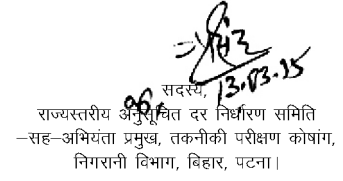 13.03.15
सदस्य,
राज्यस्तरीय अनुसूचित दर निर्धारण समिति
–सह–अभियंता प्रमुख, तकनीकी परीक्षण कोषांग,
निगरानी विभाग, बिहार, पटना।